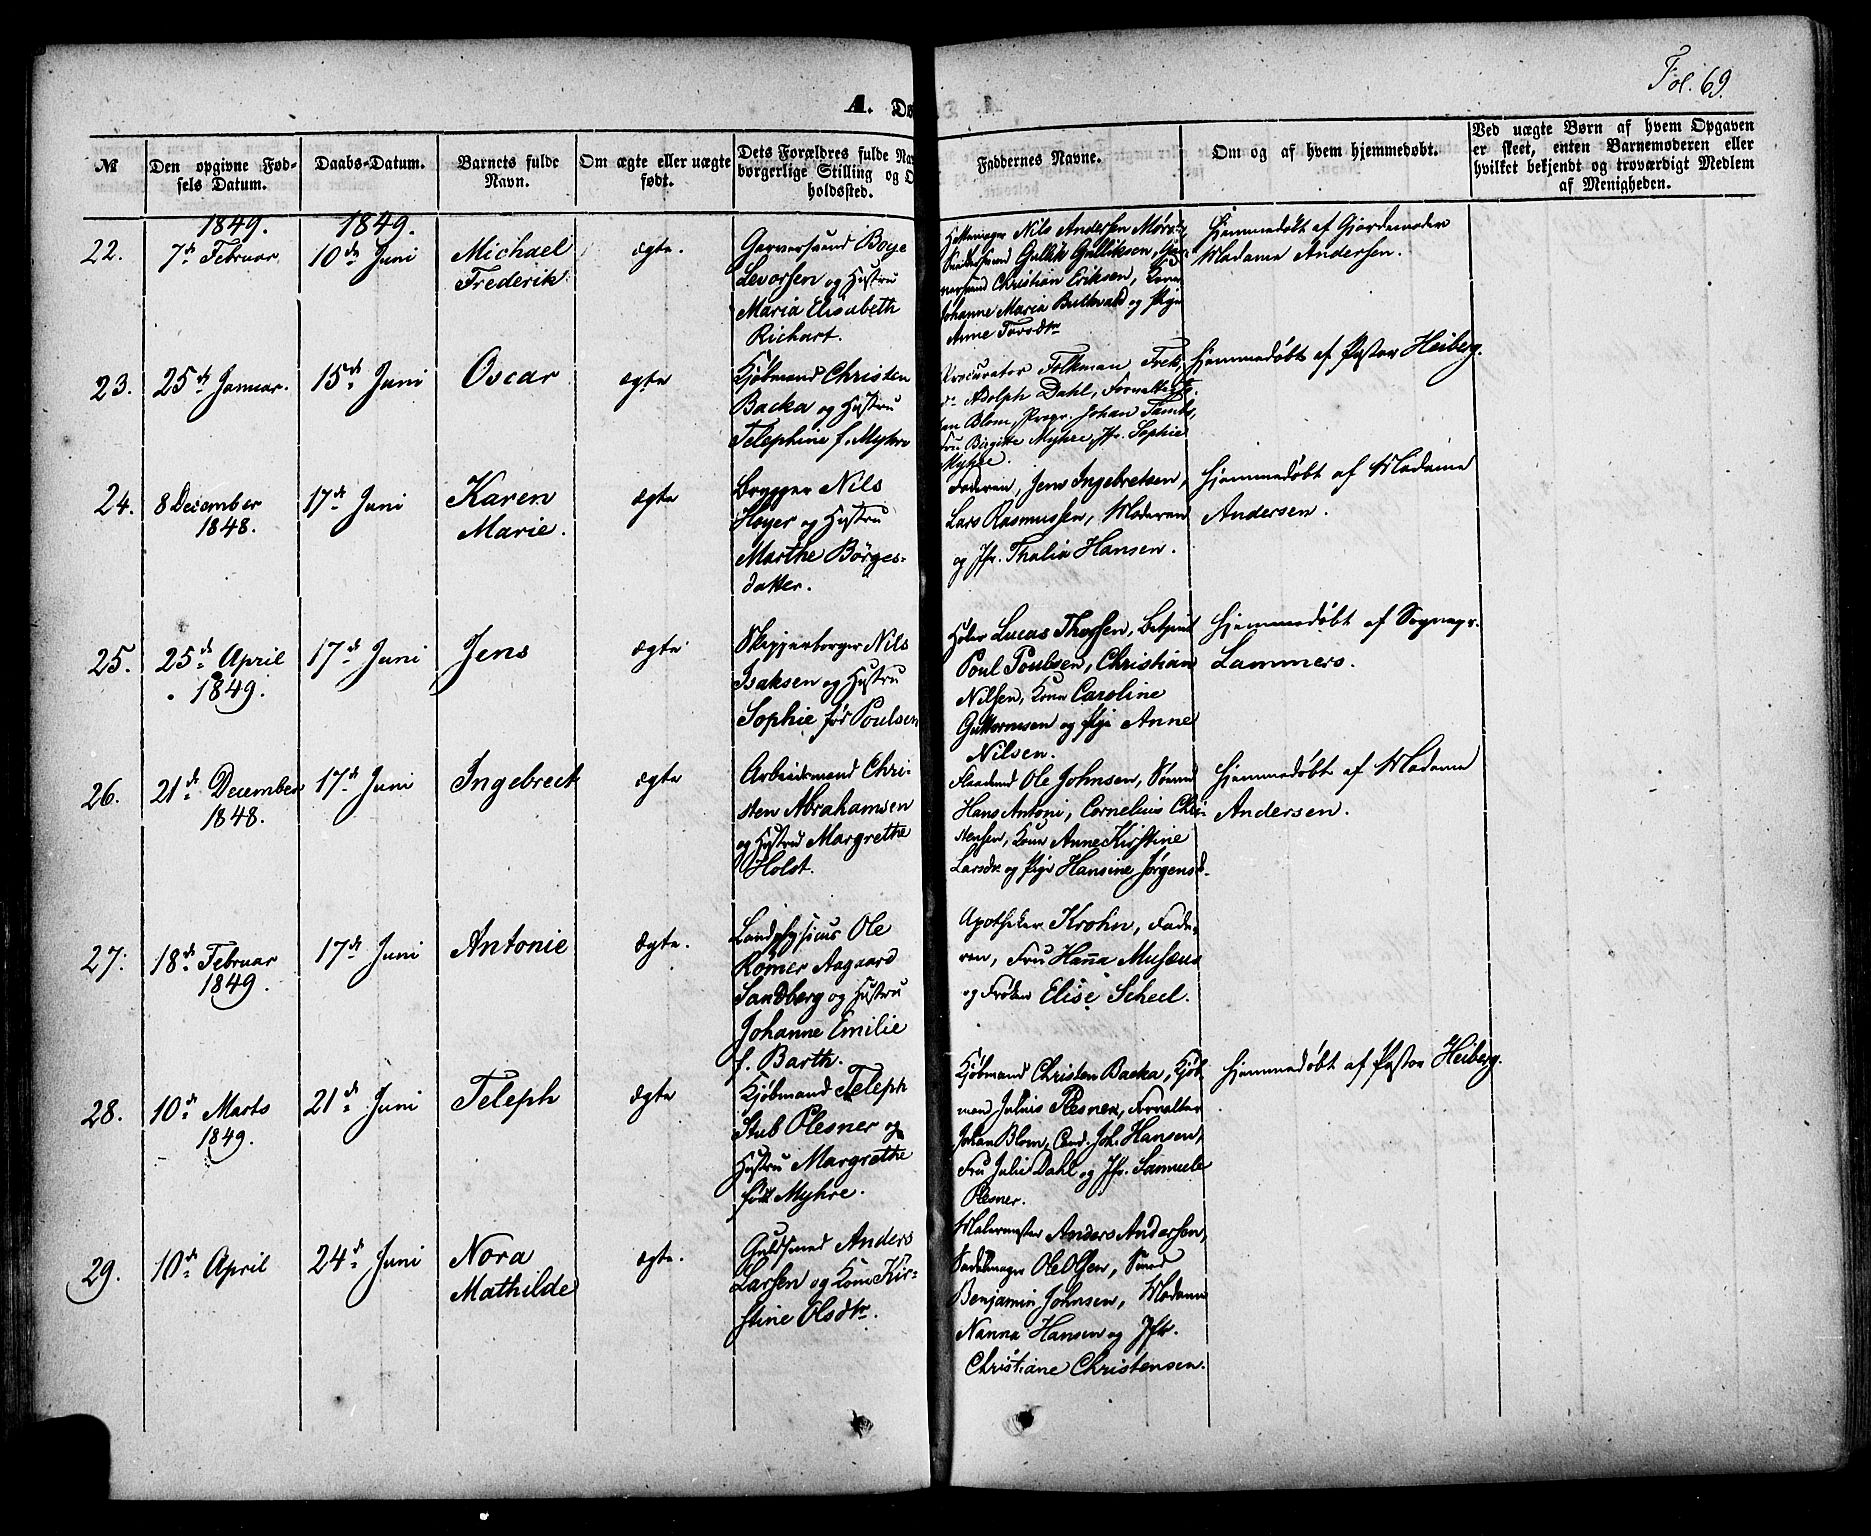 Fol. 69.
A. Dø
№
Den opgivne Fød-
sels Datum.
Daabs-Datum.
Barnets fulde
Navn.
Om ægte eller uægte
født.
Dets Forældres fulde Nav
borgerlige Stilling og O
holdssted.
Faddernes Navne.
Om og af hvem hjemmedøbt.
Ved uægte Børn af hvem Opgaven
er skeet, enten Barnemoderen eller
hvilket bekjendt og troværdigt Medlem
af Menigheden.
1849.
1849.
22.
7de Februar
10de Juni
Michael
Frederik
ægte.
Garversvend Boye
Levorsen og Hustru
Maria Elisabeth
Richart.
Nils Andersen
Gullik Gulliksen,
Christian Eriksen, Kone
Johanne Maria og Pige
Anne Torsdtr
Hjemmedøbt af Gjordemoder
Madame Andersen.
23.
25de Januar.
15de Juni
Oscar
ægte
Kjøbmand Christen
Backa og Hustru
Telephine f. Myhre
Procurator Folkman, Frek,
Adolph Dahl, Forvalter
Blom, Johan
Fru Birgitte Myhre, Jfr. Sophie
Myhre.
Hjemmedøbt af Pastor Heiberg.
24.
8 December
1848.
17de Juni
Karen
Marie.
ægte
Brygger Nils
Høyer og Hustru
Marthe Börges-
datter.
Faderen, Jens Ingebretsen,
Lars Rasmussen, Moderen
og Jfr. Thalia Hansen.
Hjemmedøbt af Madame
Andersen.
25.
25de April
1849.
17de Juni
Jens
ægte
Skipperborger Nils
Isaksen og Hustru
Sophie før Poulsen
Lucas Thorsen, Betjent
Poul Poulsen, Christian
Nilsen, Kone Caroline
Guttormsen og Pige Anne
Nilsen.
Hjemmedøbt af Sognepr.
Lammers.
26.
21de December
1848.
17de Juni
Ingebreckt
ægte
Arbeidsmand Chri-
sten Abrahamsen
og Hustru Margrethe
Holst.
Ole Johnsen, Sömand
Hans Antoni, Cornelius Chri-
stensen, Kone Anne Kirstine
Larsdr. og Pige Hansine Jørgensd.
Hjemmedøbt af Madame
Andersen.
27.
18de Februar
1849.
17de Juni
Antonie
ægte.
Landphysicus Ole
Römer Aagaard
Sandberg og Hustru
Johanne Emilie
f. Barth.
Apotheker Krohn, Fade-
ren, Fru Hanna Musæus
og Frøken Elise Scheel.
28.
10de Marts
1849.
21de Juni
Teleph
ægte
Kjöbmand Teleph
Stub Plesner og
Hustru Margrethe
född Myhre.
Kjöbmand Christen Backa, Kjöb-
mand Julius Plesner, Forvalter
Johan Blom, Cand. Joh. Hansen,
Fru Julie Dahl og Jfr. Samuele
Plesner.
Hjemmedøbt af Pastor Heiberg.
29.
10de April
24de Juni
Nora
Mathilde
ægte.
Guldsmed Anders
Larsen og Kone Kir-
stine Olsdtr.
Malermester Anders Andersen,
Sadelmager Ole Olsen, Smed
Benjamin Johnsen, Madame
Nanna Hansen og Jfr.
Christiane Christensen.